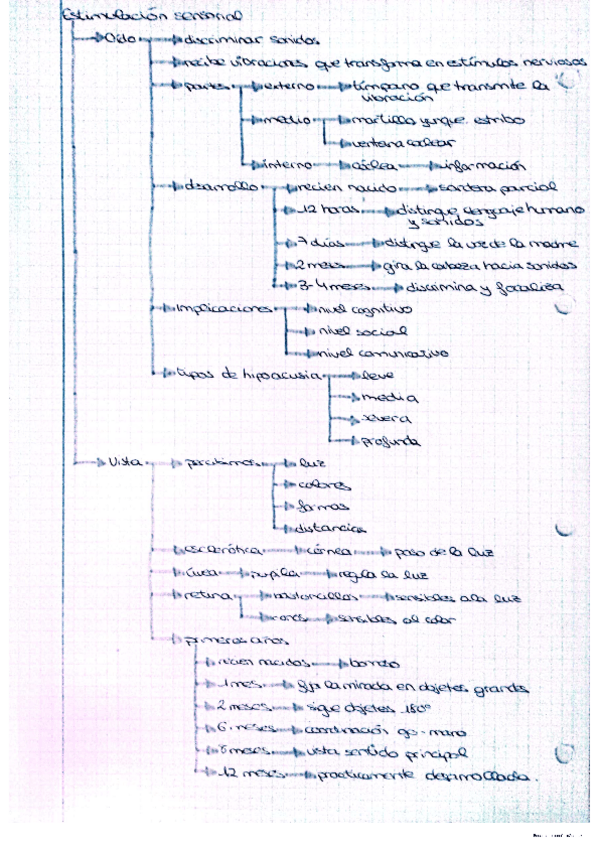 Estimulación sensorial
Oído discriminar sonidos
recibe vibraciones que transforma en estímulos nerviosos
partes externo tímpano que transmite la
vibración
medio martillo yunque estribo
ventana
interno cóclea información
desarrollo recien nacido sordera parcial
12 horas distingue lenguaje humano
y sonidos
7 días distingue la voz de la madre
2 meses gira la cabeza hacia sonidos
3-4 meses discrimina y focaliza
Implicaciones nivel cognitivo
nivel social
nivel comunicativo
tipos de hipoacusia leve
media
severa
profunda
Vista percibimos luz
colores
formas
distancias
esclerótica córnea paso de la luz
úvea pupila regula la luz
retina bastoncillos sensibles a la luz
conos sensibles al color
primeros años
recien nacidos borroso
1 mes fija la mirada en objetos grandes
2 meses sigue objetos 180º
6 meses coordinación ojo-mano
6 meses vista sentido principal
12 meses practicamente desarrollada.